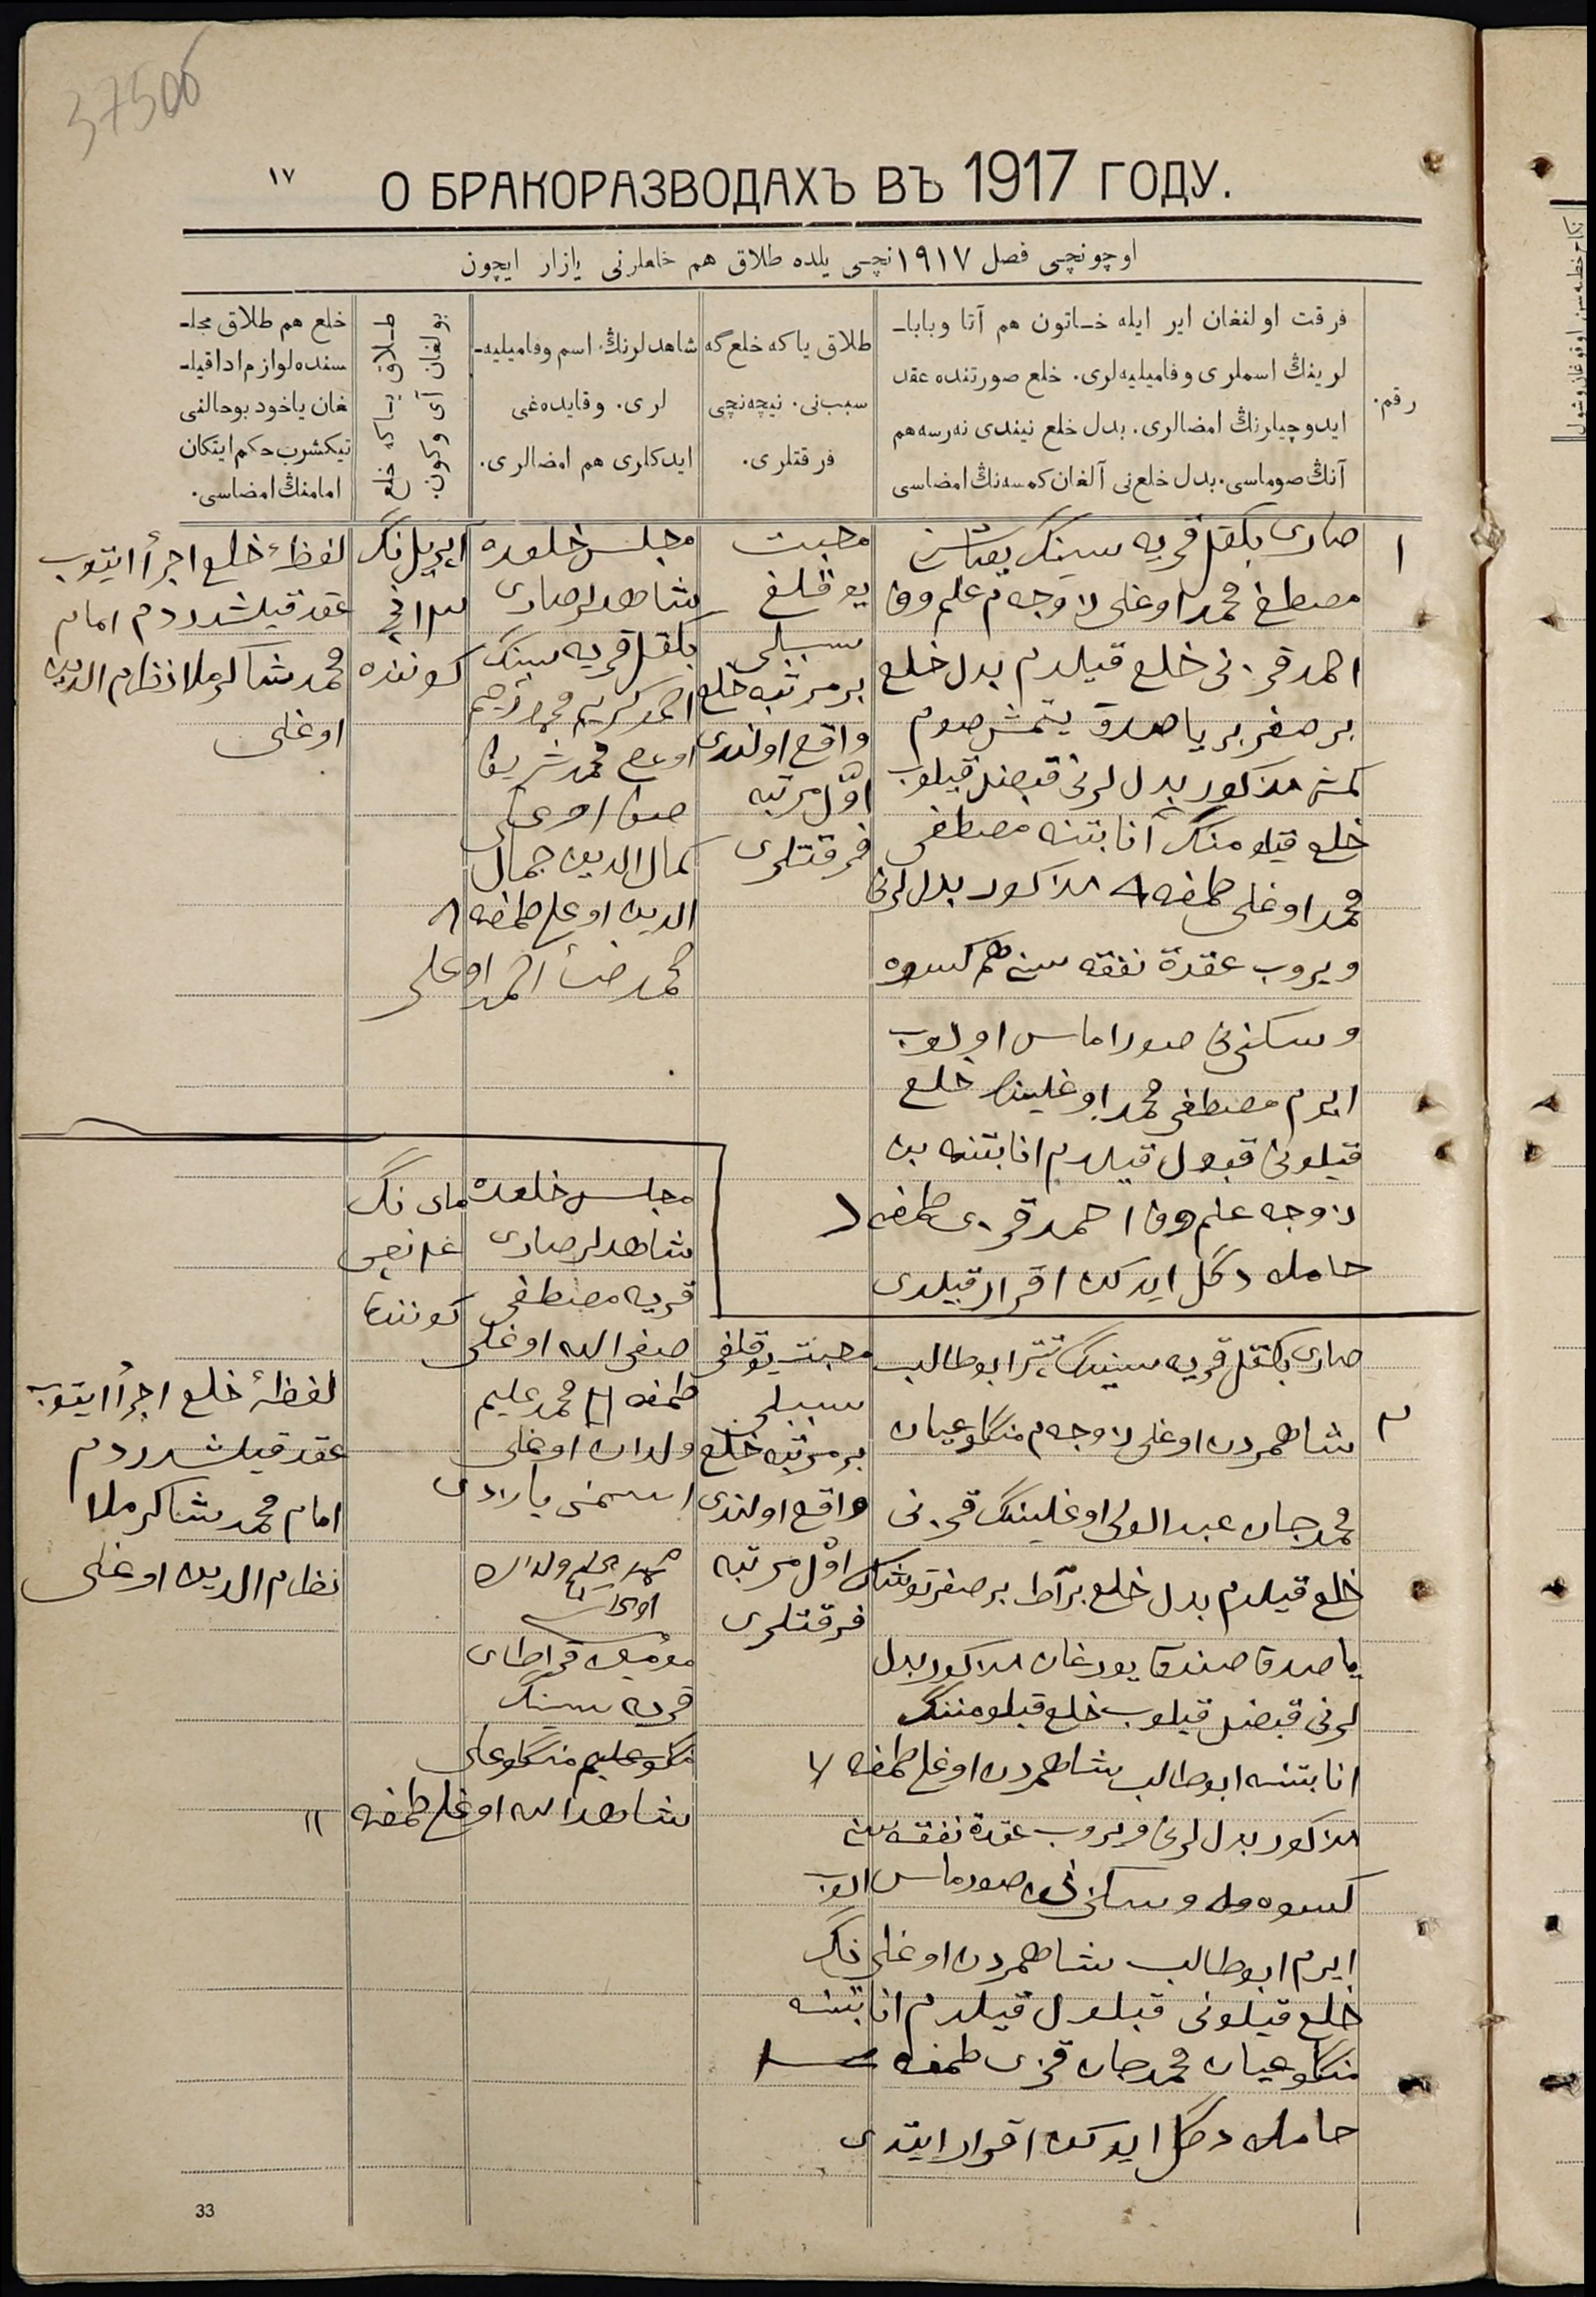 37506
١٧
О БРАКОРАЗВОДАХЪ ВЪ 1917 ГОДУ.
اوچونچی فصل ١٩١٧نچی یلده طلاق هم خلعلرنی یازار ایچون
رقم.
فرقت اولنغان ایر ایله خاتون هم آتا وبابا-
لرینڭ اسملری وفامیلیه‌لری. خلع صورتنده عقد
ایدوچیلرنڭ امضالری. بدل خلع نیندی نه‌رسه هم
آنڭ صوماسی. بدل خلع‌نی آلغان کمسه‌نڭ امضاسی
طلاق یاکه خلع‌گه
سبب‌نی. نیچه‌نچی
فرقتلری.
شاهدلرنڭ اسم وفامیلیه-
لری. وقایده‌غی
ایدکلری هم امضالری.
طلاق یاکه خلع
بولغان آی وکون.
خلع هم طلاق مجلـ
سنده لوازم ادا قیلـ
غان یاخود بوحالنی
تیکشرب حکم ایتکان
امامنڭ امضاسی.
١
صاری بلکقل قریه سینک
مصطفی محمد اوغلی زوجه‌م علم وفا
احمد قزی نی خلع قیلدم بدل خلع
بر صفر بر یاصدق یتمش صوم
کمش مذکور بدل لرنی قبض قیلوب
خلع قیلومنک آنا بتنه مصطفی
محمد اوغلی طمغه مذکور بدل لرنی
ویروب عقدة نفقه سنی هم کسوه
وسکنی نی صوراماس اولوب
ایرم مصطفی محمد اوغلینڭ خلع
قیلونی قبول قیلدم انا بتنه بن
زوجه علم وفا احمد قزی طمغه
حامله دگل ایدکن اقرار قیلدی
محبت
یوقلغ
سببلی
بر مرتبه خلع
واقع اولندی
اوّل مرتبه
فرقتلری
مجلس خلعده
شاهدلر صاری
بلکقل قریه سینک
احمد کریم محمد رحیم
اوغلی محمد شریف
صفا اوغلی
کمال الدین جمال
الدین اوغلی طمغه ٨
محمد ضیأ احمد اوغلی
اپریل نک
١٣ نچی
کوننده
لفظهٔ خلع اجرأ ایتوب
عقد قیلشدردم امام
محمد شاکر ملا نظام الدین
اوغلی
٢
صاری بلکقل قریه سینک تبتر ابو طالب
شاهمردن اوغلی زوجه‌م منکلوعیان
محمدجان عبد الولی اوغلینک قزی نی
خلع قیلدم بدل خلع بر آط بر صفر توشک
یاصدق صندق یورغان مذکور بدل
لرنی قبض قیلوب خلع قیلومننک
انا بتنه ابوطالب شاهمردن اوغلی طمغه
مذکور بدل لرنی ویروب عقدة نفقه سنی
کسوه وسکنی نی صورماس اولوب
ایرم ابوطالب شاهمردن اوغلی نک
خلع قیلونی قبول قیلدم انا بتنه
منکلوعیان محمدجان قزی طمغه
حامله دگل ایدکن اقرار ایتدی
محبت یوقلغی
سببلی
بر مرتبه خلع
واقع اولندی
اوّل مرتبه
فرقتلری
مجلس خلعده
شاهدلر صاری
قریه مصطفی
صفی الله اوغلی
طمغه محمد علیم
ولدان اوغلی
اسمنی یازدی
قریه سینک
منکلوعلی
شاهدالله اوغلی طمغه ١١
مای نک
نچی
کوننده
لفظهٔ خلع اجرأ ایتوب
عقد قیلشدردم
امام محمد شاکر ملا
نظام الدین اوغلی
33